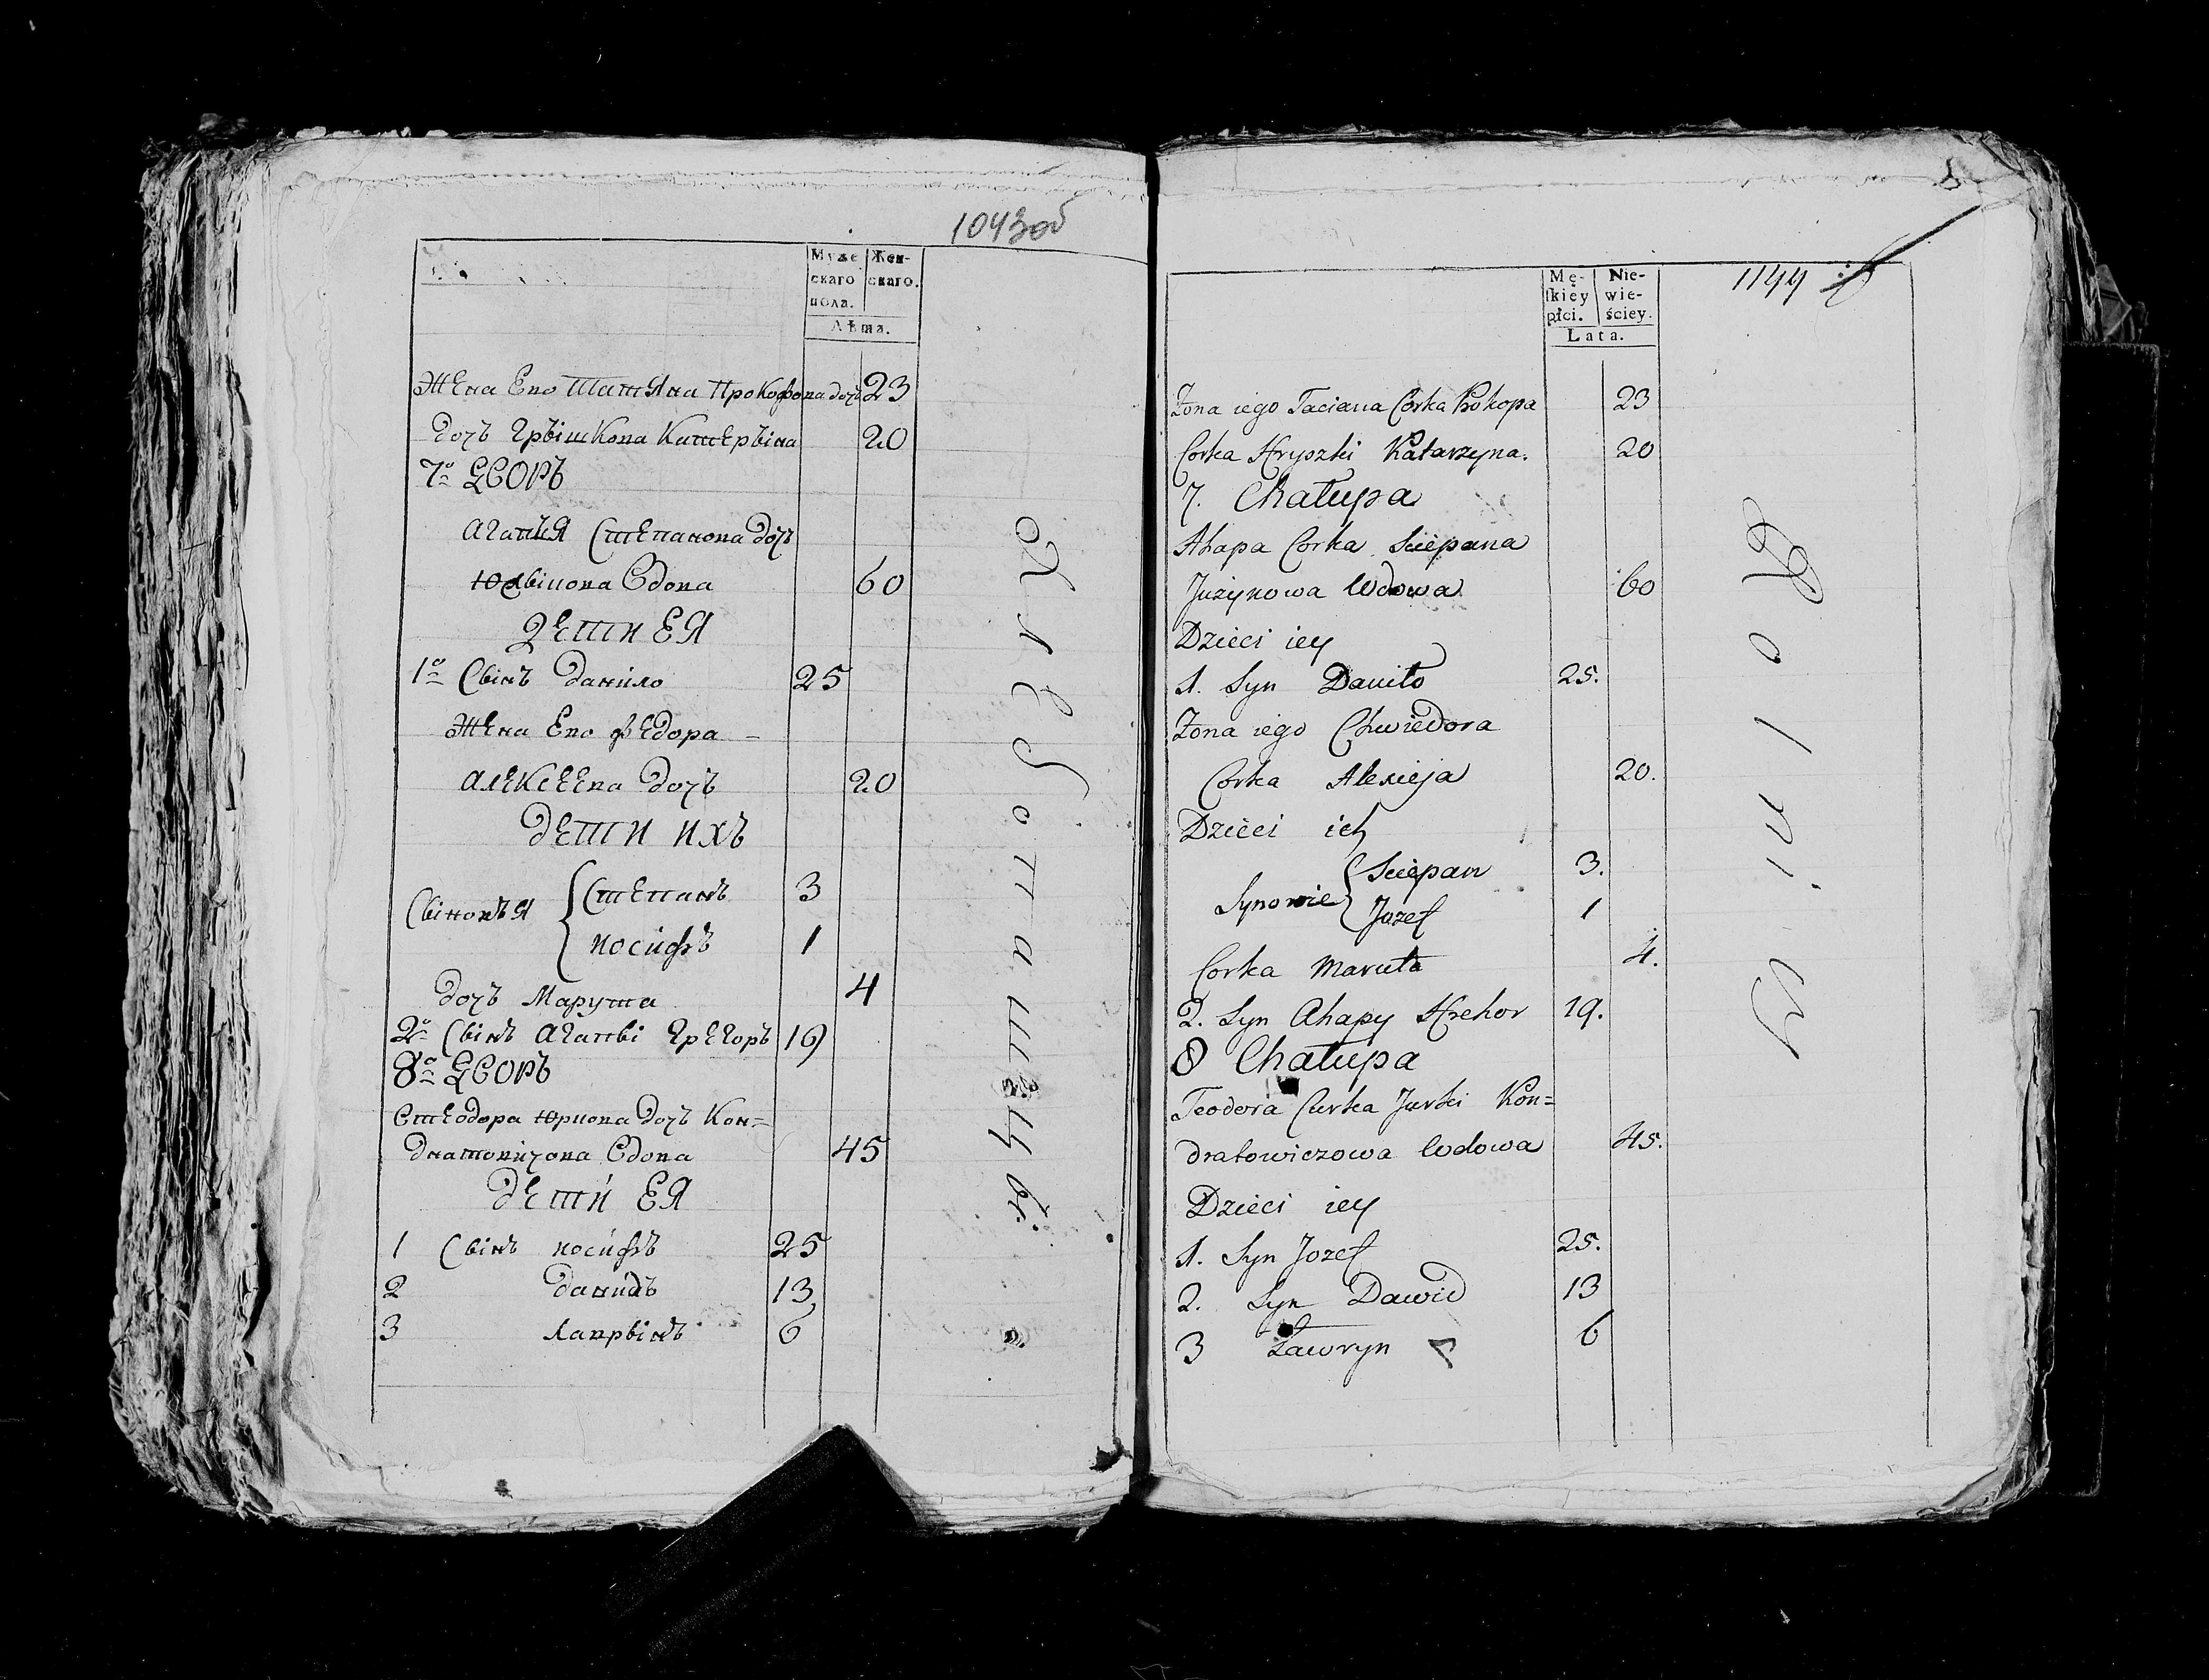 1043об
Муже
скаго
пола.
Жен-
скаго.
Лѣта.
Жена Его Татяна Прокофова дочь 23
дочь Грышкова Катерына 20
7о ДВОРЪ
Агапья Степанова дочь
Вдова 60
дети ЕЯ
1о Сынъ данило 25
Жена Его федора
алексеева дочь 20
дети ихъ
Сыновья Степанъ 3
иосифъ 1
дочь Марута 4
2о Сынъ агапы Грегоръ 19
8о ДВОРЪ
дочь Кон=
дратовичова Вдова 45
дети ЕЯ
1 Сынъ иосифъ 25
2 давидъ 13
3 лаврынъ 6
1144
Mę-
skiey
płci.
Nie-
wie-
ściey.
Lata.
Żona iego Taciana Corka Prokopa 23
Corka Hryszki Katarzyna. 20
7. Chałupa
Ahapa Corka Sciepana
Juzynowa Wdowa 60
Dzieci iey
1. Syn Daniło 25.
Żona iego Chwiedora
Corka Alexieja 20.
Dzieci ich
Synowie Sciepan 3.
Jozef 1
Corka Maruta 4.
2. Syn Ahapy Hrehor 19.
8 Chałupa
Teodora Curka Jurki Kon=
dratowiczowa Wdowa 45.
Dzieci iey
1. Syn Jozef 25.
2. Syn Dawid 13
3 Ławryn 6